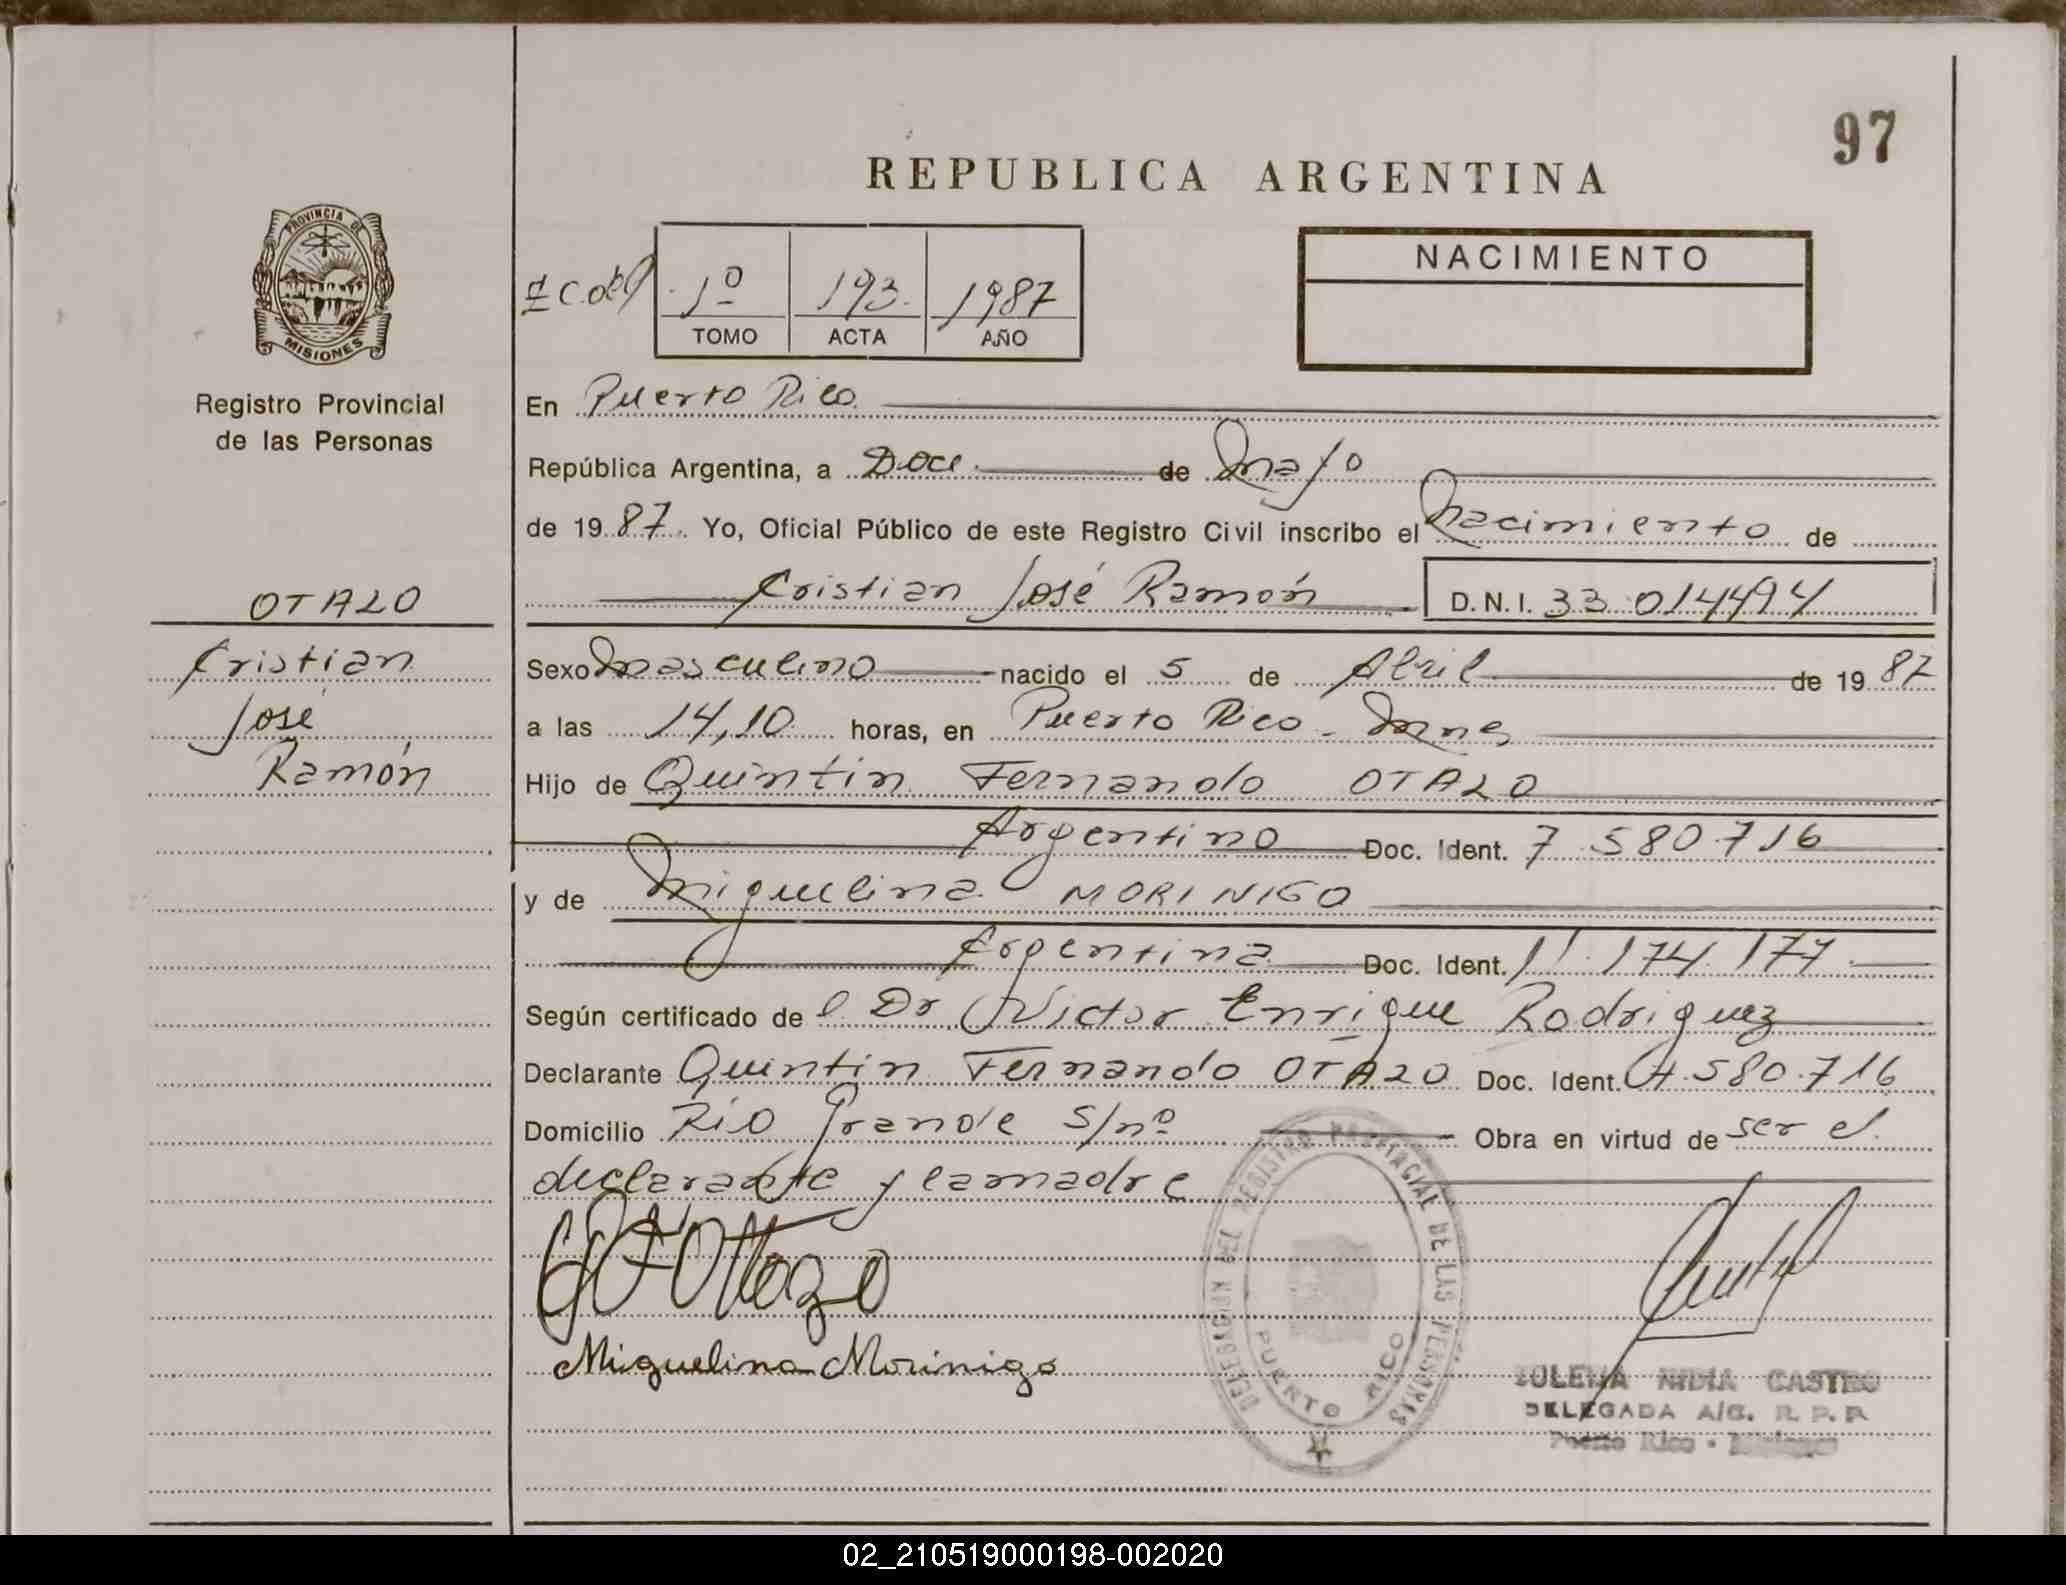 97
REPUBLICA ARGENTINA
PROVINCIA DE
MISIONES
Registro Provincial
de las Personas
1º 193 1987
TOMO ACTA AÑO
NACIMIENTO
En Puerto Rico
República Argentina, a Doce de Mayo
de 19 87 Yo, Oficial Público de este Registro Civil inscribo el Nacimiento de
Cristian José Ramón D.N.I. 33 014494
OTAZO
Cristian
José
Ramón
Sexo Masculino nacido el 5 de Abril de 19 87
a las 14,10 horas, en Puerto Rico - Mnes
Hijo de Quintin Fernando OTAZO
Argentino Doc. Ident. 7 580 716
y de Miguelina MORINIGO
Argentina Doc. Ident. 11.174.177
Según certificado de l Dr Victor Enrique Rodriguez
Declarante Quintin Fernando OTAZO Doc. Ident. 7.580.716
Domicilio Río Grande S/nº Obra en virtud de ser el
declarante y la madre
Otazo
Miguelina Morinigo
DELEGACION DEL REGISTRO PROVINCIAL DE LAS PERSONAS
PUERTO RICO
NIDIA CASTRO
DELEGADA A/C. R. P. P.
Puerto Rico - Misiones
02_210519000198-002020